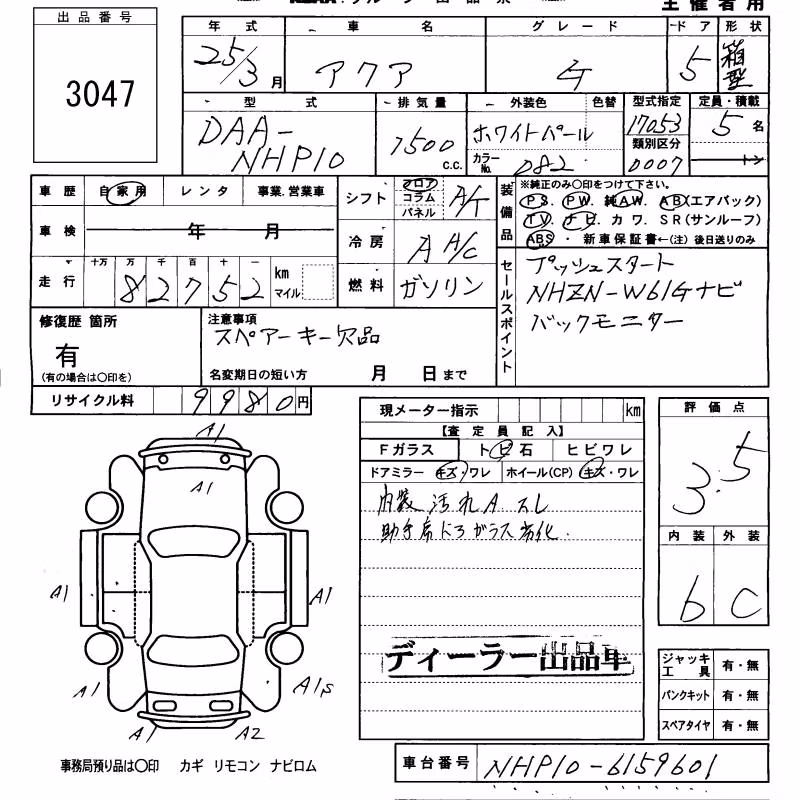 主催者用
出品番号
3047
年式 車名 グレード ドア 形状
25/3月 アクア G 5 箱型
型式 排気量 外装色 色替 型式指定 定員・積載
DAA-NHP10 1500c.c. ホワイトパール 17053 5名
カラーNo. 082 類別区分 0007 トン
車歴 自家用 レンタ 事業.営業車
車検 年 月
走行 十万 万 千 百 十 一
82752 km マイル
シフト フロア コラム パネル A/T
冷房 A A/C
燃料 ガソリン
装備品 ※純正のみ○印をつけて下さい。
PS. PW. 純AW. AB(エアバック)
TV. ナビ. カワ. SR(サンルーフ)
ABS ・ 新車保証書←(注) 後日送りのみ
セールスポイント
プッシュスタート
NHZN-W61Gナビ
バックモニター
修復歴 箇所
有
(有の場合は○印を)
注意事項
スペアーキー欠品
名変期日の短い方 月 日まで
リサイクル料 9980円
現メーター指示 km
【査定員記入】
Fガラス トビ石 ヒビワレ
ドアミラー キズ・ワレ ホイール(CP) キズ・ワレ
内装 汚れA スレ
助手席ドアガラス劣化.
ディーラー出品車
評価点
3.5
内装 外装
b C
A1
A1
A1 A1
A1 A1s
A1 A2
ジャッキ工具 有・無
パンクキット 有・無
スペアタイヤ 有・無
事務局預り品は○印 カギ リモコン ナビロム
車台番号 NHP10-6159601